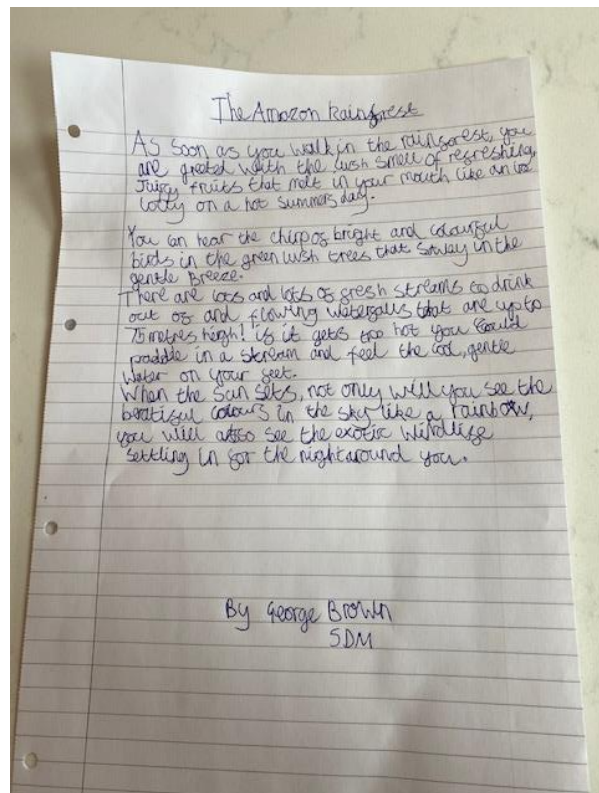 The Amazon Rainforest
As soon as you walk in the rainforest, you
are greeted with the lush smell of refreshing,
Juicy fruits that melt in your mouth like an ice
lolly on a hot summers day.
You can hear the chirp of bright and colourful
birds in the green lush trees that sway in the
gentle Breeze.
There are lots and lots of fresh streams to drink
out of and flowing waterfalls that are up to
75 metres heigh! if it gets too hot you could
paddle in a stream and feel the cool, gentle
water on your feet.
When the sun sets, not only will you see the
beatiful colours in the sky like a rainbow,
you will also see the exotic wildlife
settling in for the night around you.
By George Brown
5DM